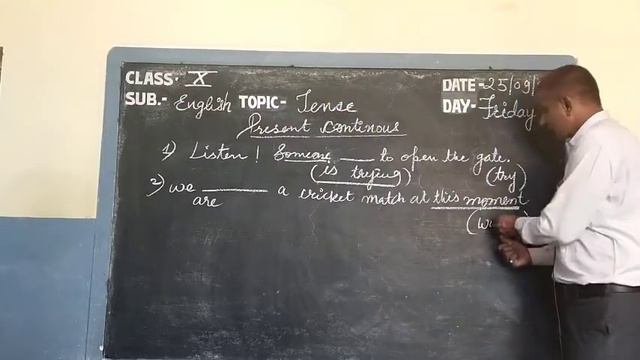 CLASS- X
SUB.- English TOPIC- Tense
DATE- 25/09/
DAY- Friday
Present continous
1) Listen! Someone ___ to open the gate.
(is trying) (try)
2) we ___ a cricket match at this moment
are